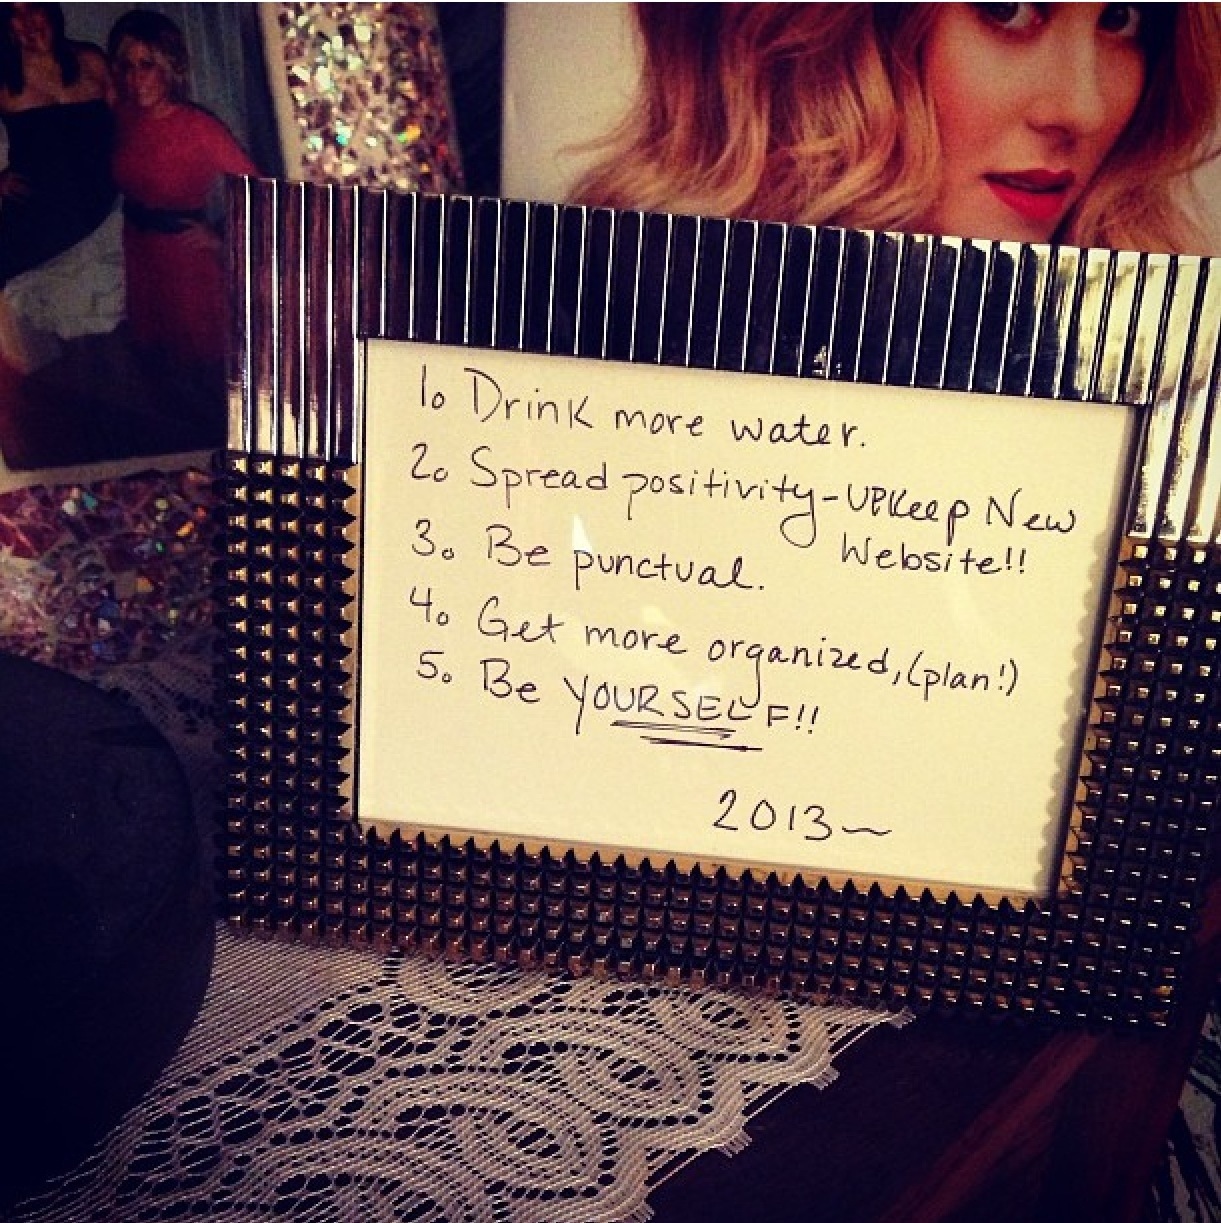 1. Drink more water.
2. Spread positivity - UPKeep New
Website!!
3. Be punctual.
4. Get more organized, (plan!)
5. Be YOURSELF!!
2013~